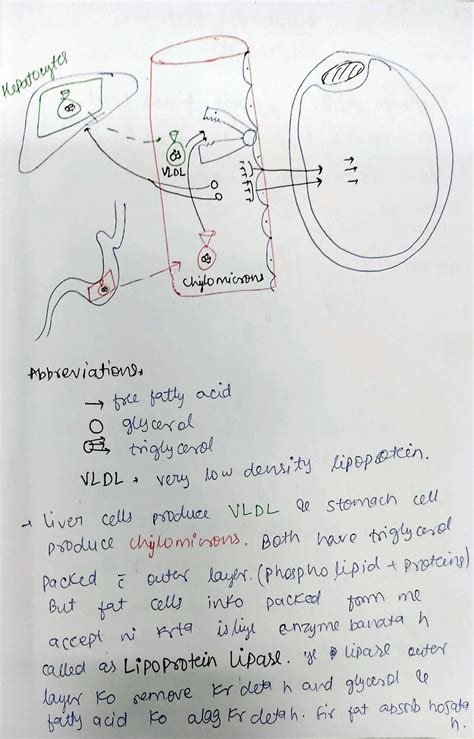 Hepatocytes
VLDL
chylomicrons
Abbreviations,
→ free fatty acid
glycerol
triglycerol
VLDL → very low density lipoprotein.
→ Liver cells produce VLDL & stomach cell
produce chylomicrons. Both have triglycerol
packed c̄ outer layer. (phospho lipid + proteins)
But fat cells inko packed form me
accept ni krta isliye enzyme banata h
called as Lipoprotein Lipase. ye lipase outer
layer ko remove kr deta h and glycerol &
fatty acid ko alag kr detah. Fir fat absorb hojata
h.